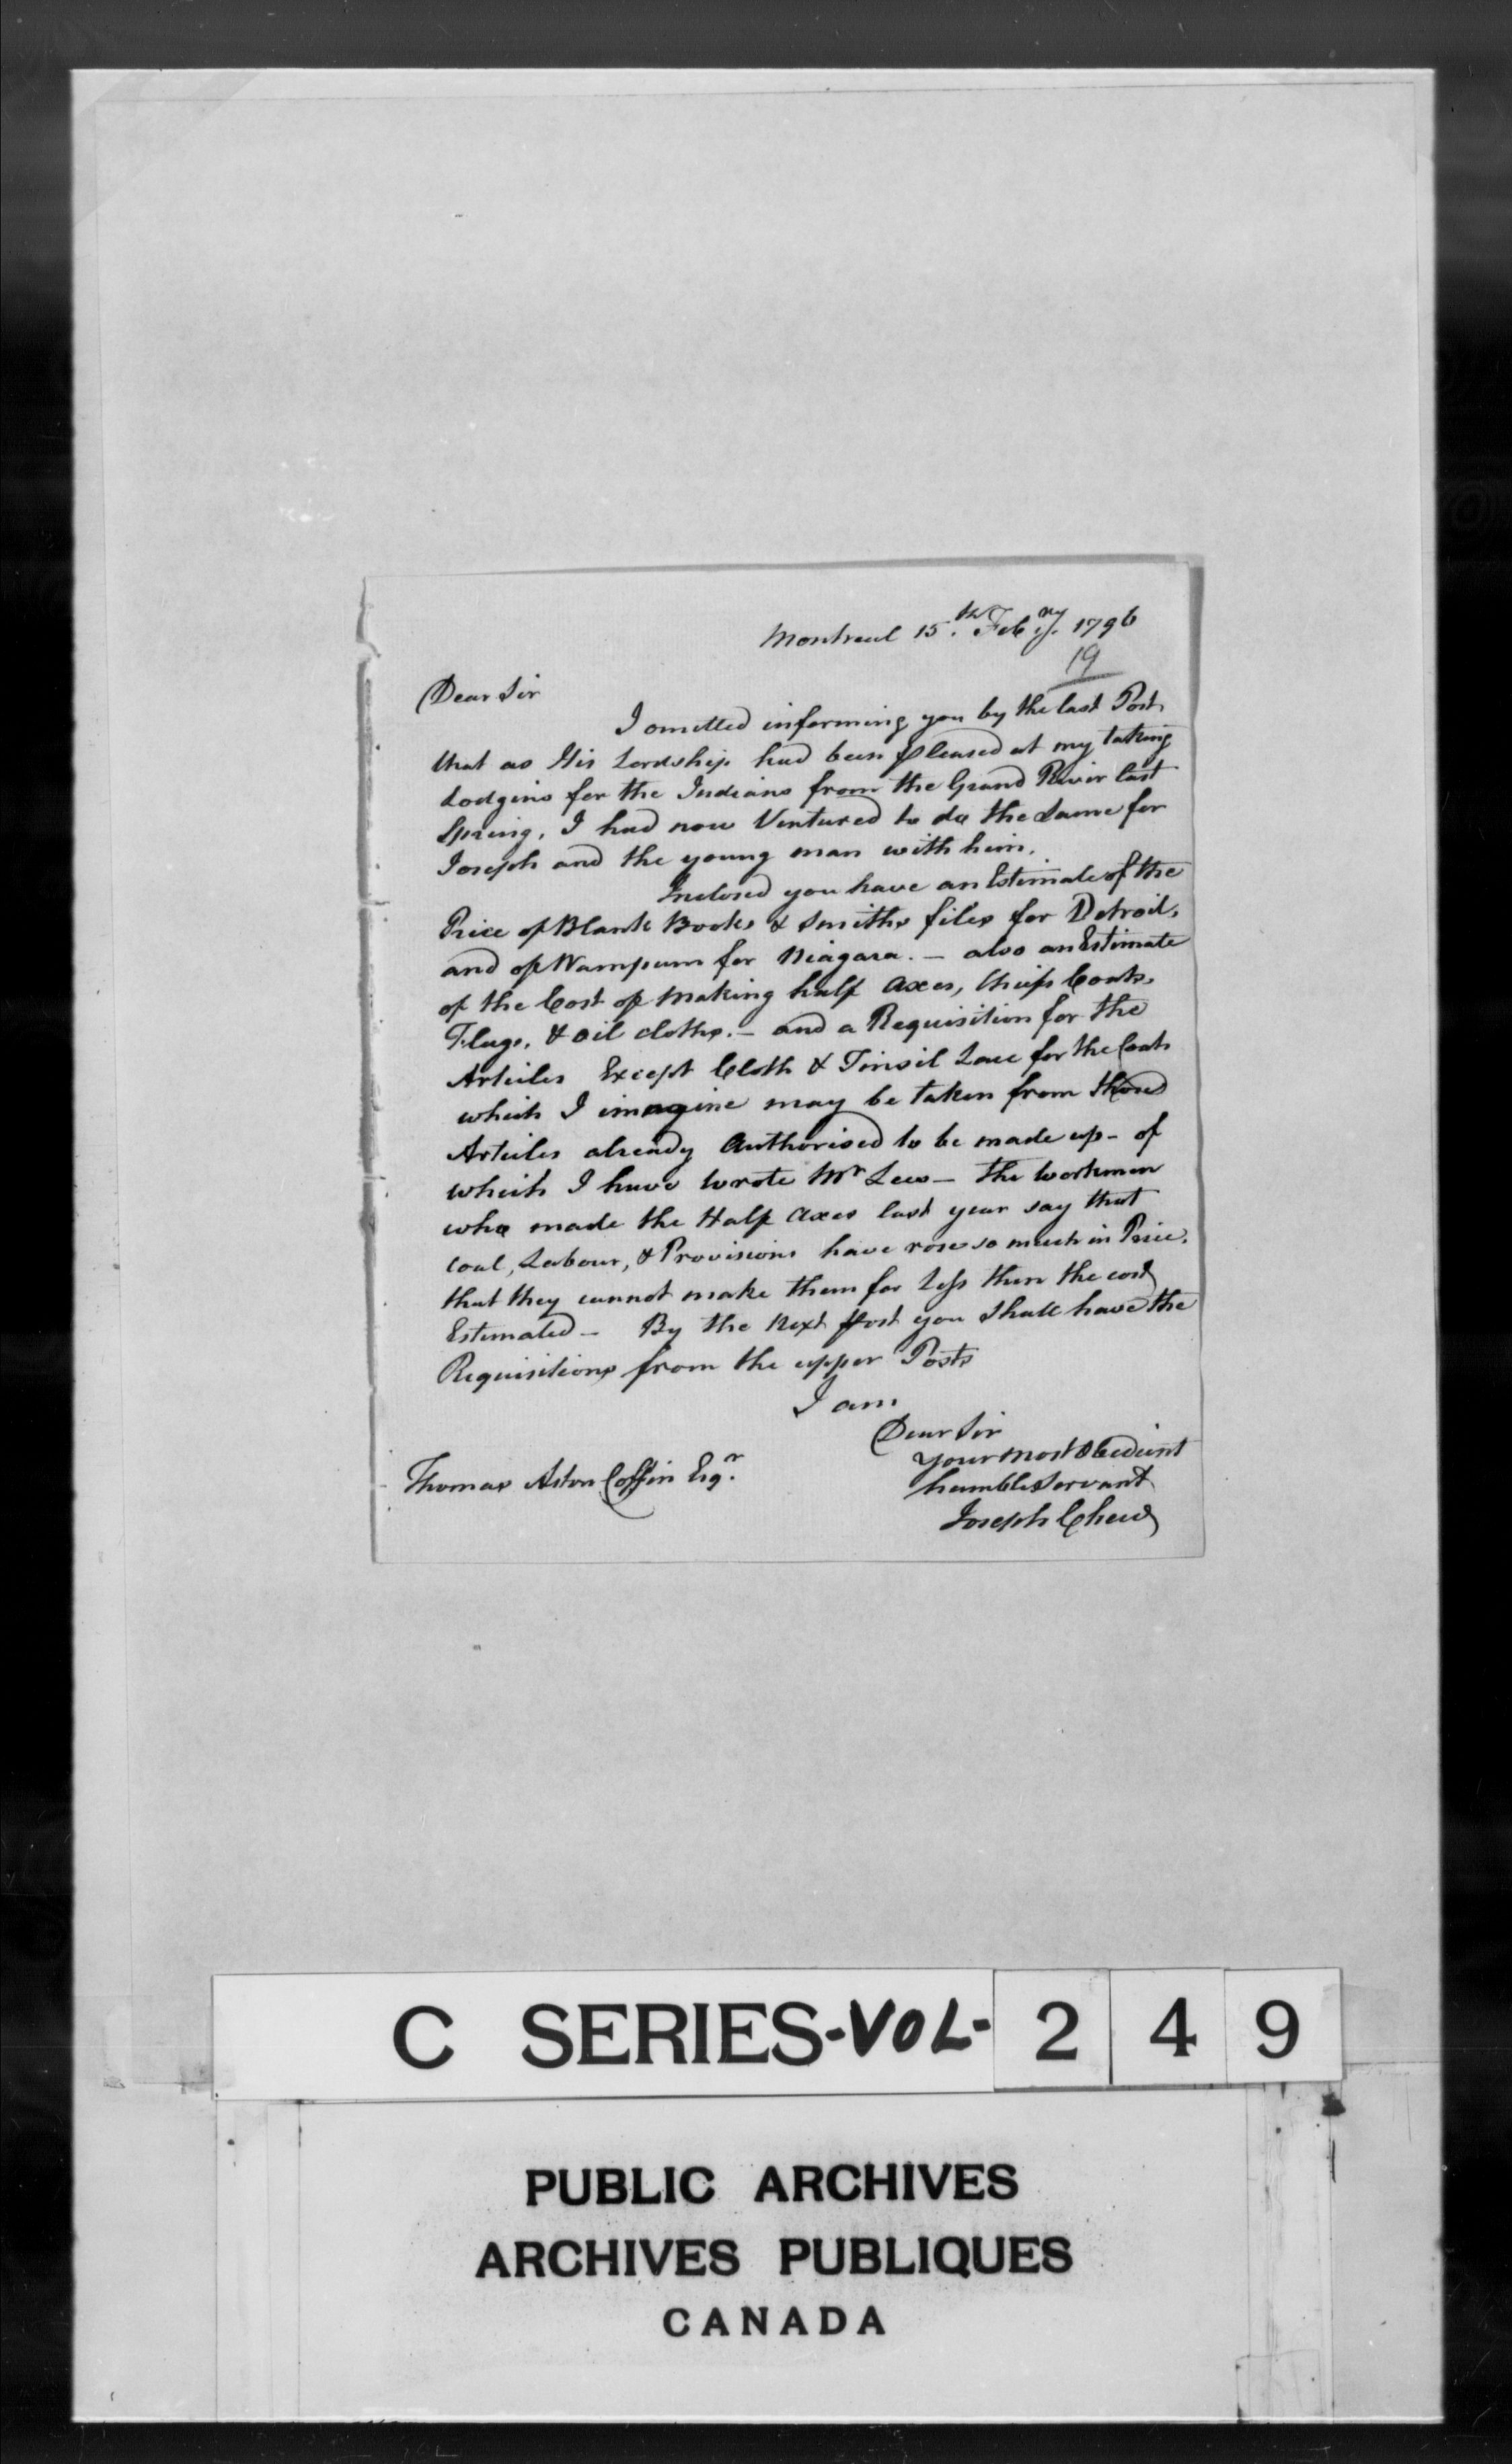 Montreal 15th Febry. 1796
19
Dear Sir
I omitted informing you by the last Post,
that as His Lordship had been pleased at my taking
Lodgins for the Indians from the Grand River last
Spring, I had now Ventured to do the Same for
Joseph and the young man with him.
Inclosed you have an Estimate of the
Price of Blank Books & Smiths files for Detroit,
and of Wampum for Niagara. - also an Estimate
of the Cost of Making half Axes, Chiefs Coats,
Flags, & oil cloths. - and a Requisition for the
Articles Except Cloth & Tinsil Lace for the Coats
which I imagine may be taken from those
Articles already Authorised to be made up - of
which I have wrote Mr Lees - the workmen
who made the Half Axes last year say that
coal, Labour, & Provisions have rose so much in Price,
that they cannot make them for Less then the cost
Estimated - By the Next Post you Shall have the
Requisitions from the upper Posts
I am
Dear Sir
your most obedient
humble Servant
Joseph Chew
Thomas Aston Coffin Esqr.
C SERIES-VOL-249
PUBLIC ARCHIVES
ARCHIVES PUBLIQUES
CANADA